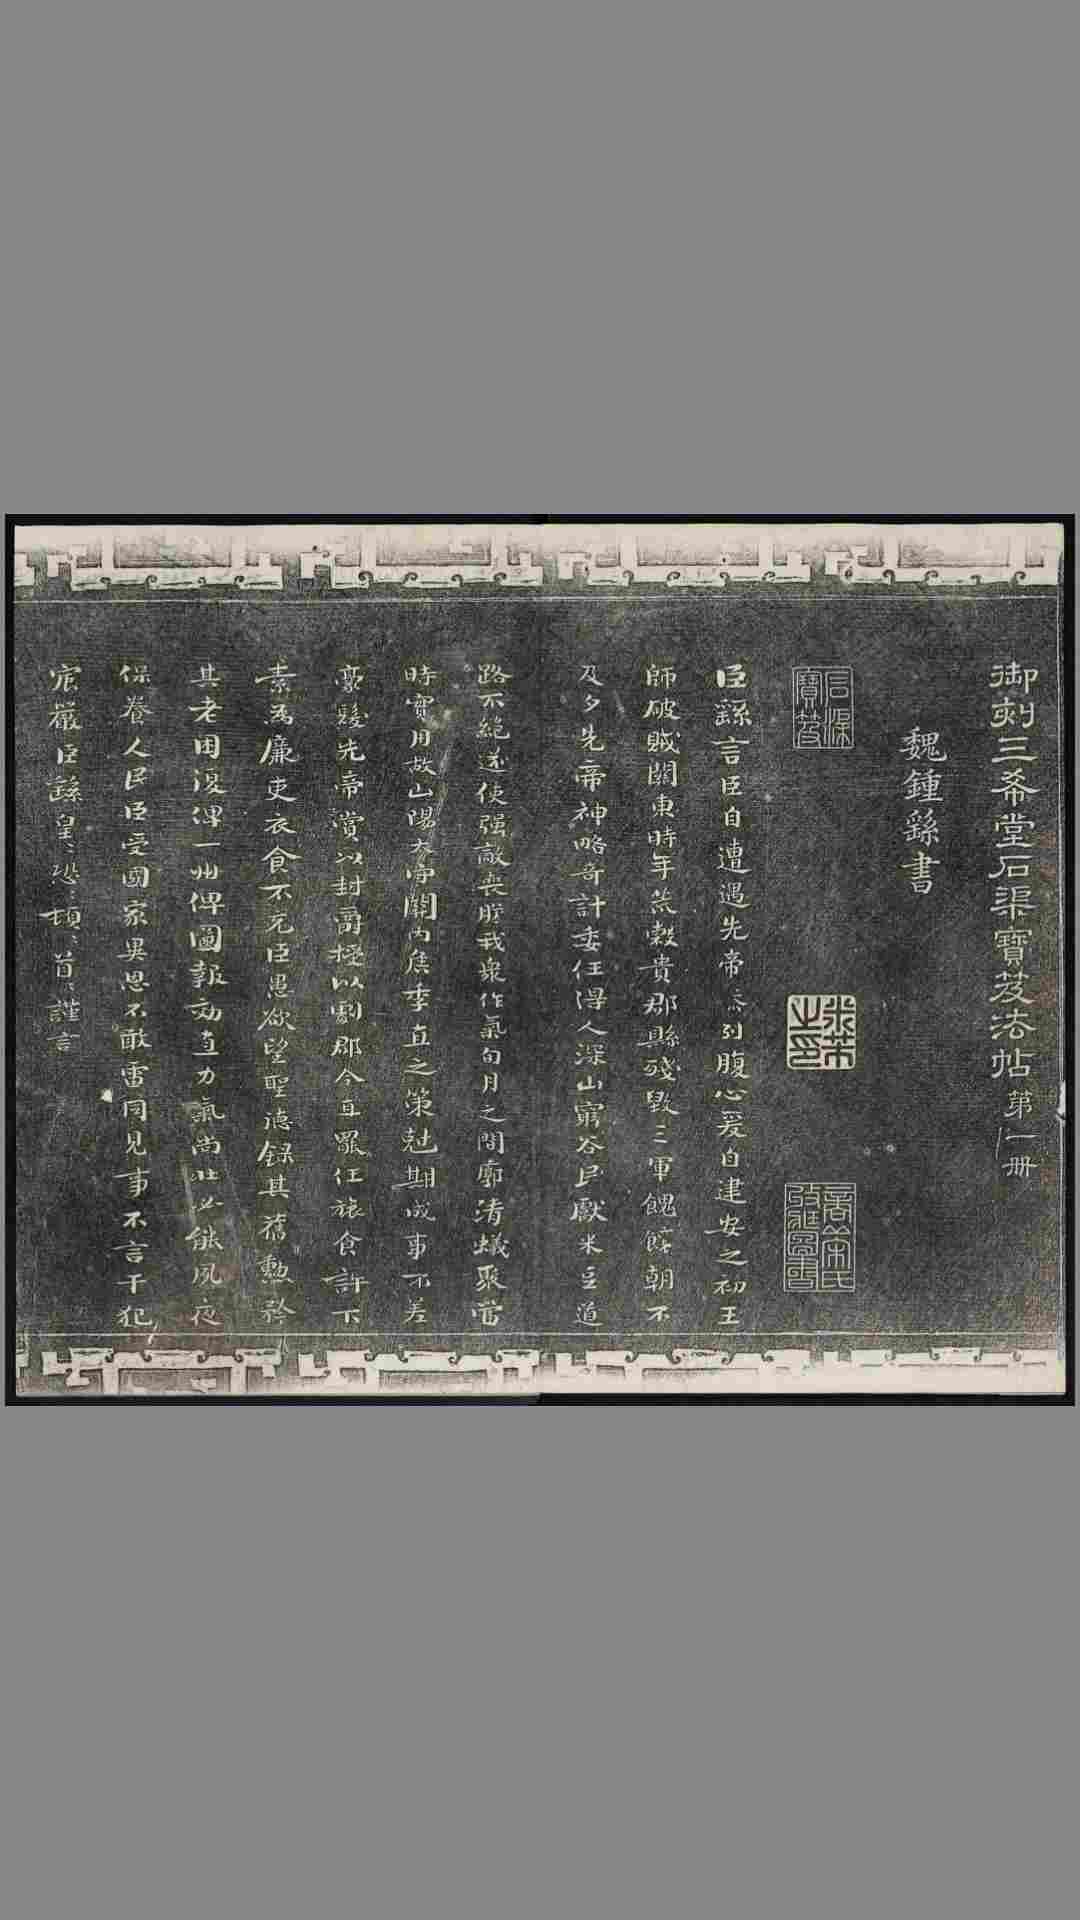 御刻三希堂石渠寶笈法帖第一册
魏鍾繇書
石渠寶笈
米芾之印
臣繇言臣自遭遇先帝忝列腹心爰自建安之初王
師破賊關東時年荒穀貴郡縣殘毀三軍餽饟朝不
及夕先帝神略奇計委任得人深山窮谷民獻米豆道
路不絕遂使強敵喪膽我衆作氣旬月之間廓清蟻聚當
時實用故山陽太守關內侯季直之策尅期成事不差
豪髮先帝賞以封爵授以劇郡今直罷任旅食許下
素爲廉吏衣食不充臣愚欲望聖德錄其舊勳矜
其老困復俾一州俾圖報効直力氣尚壯必能夙夜
保養人民臣受國家異恩不敢雷同見事不言干犯
宸嚴臣繇皇〻恐〻頓〻首〻謹言